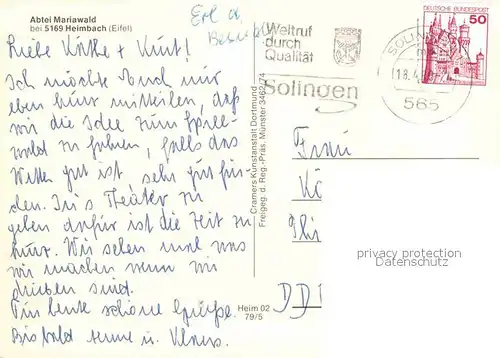 Abtei Mariawald
bei 5169 Heimbach (Eifel)
Erl a
Liebe Käthe + Kurt!
Ich möchte Euch nur
eben kurz mitteilen, daß
wir die Idee zum Spree-
wald zu fahren, falls das
Wetter gut ist sehr gut fin-
den. In's Theater zu
gehen dafür ist die Zeit zu
kurz. Wir sehen mal was
wir machen wenn wir
drüben sind.
Für heute schöne Grüße.
Bis bald
u. Klaus.
Cramers Kunstanstalt Dortmund
Freigeg. d. Reg.-Präs. Münster 3462/74
Heim 02
79/5
Weltruf
durch
Qualität
Solingen
SOLIN
18.4
565
DEUTSCHE BUNDESPOST
50
Frau
Kö
privacy protection
Datenschutz
DD